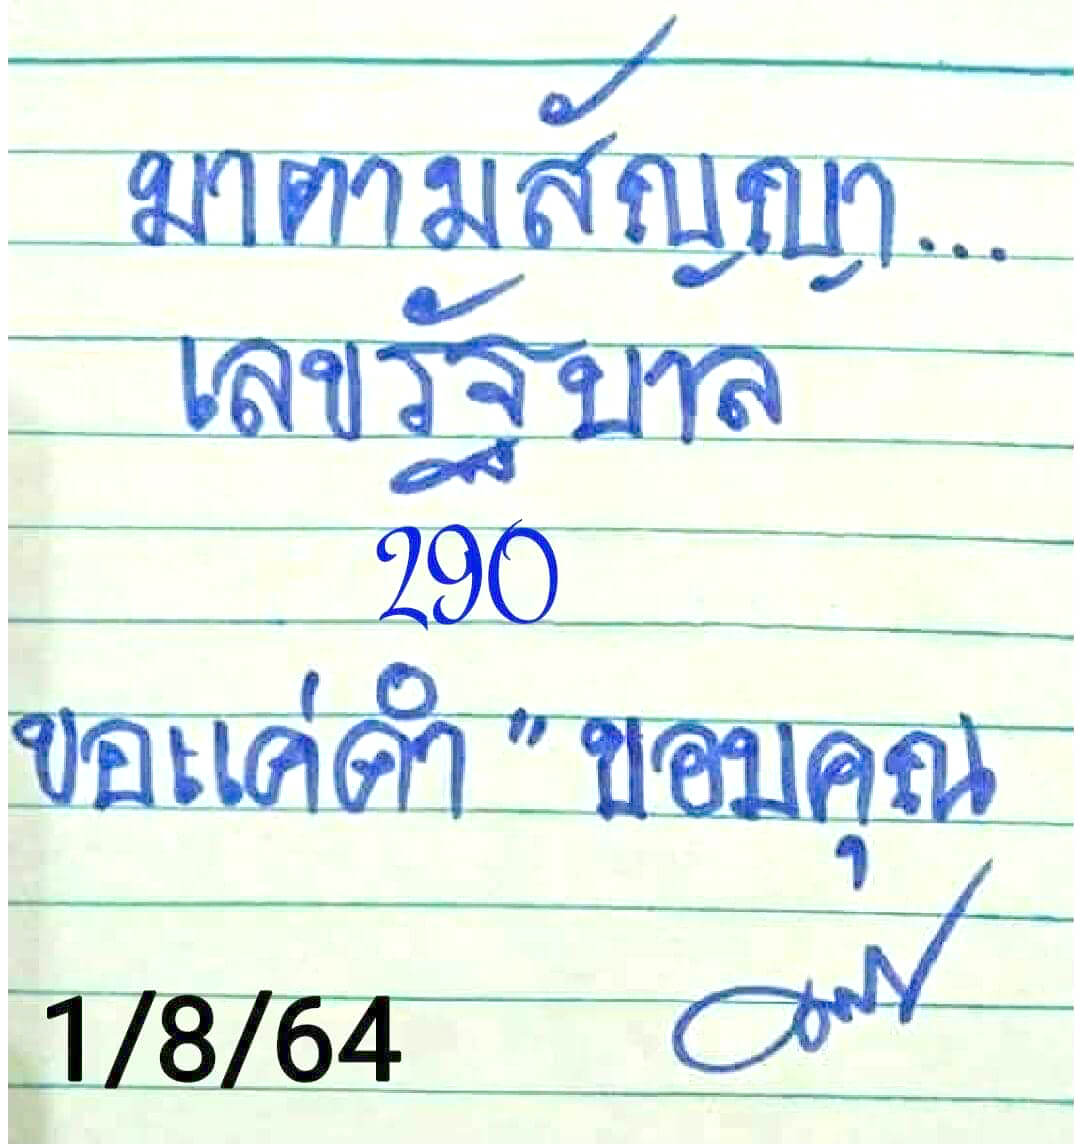 มาตามสัญญา...
เลขรัฐบาล
290
ขอแค่คำ " ขอบคุณ
1/8/64